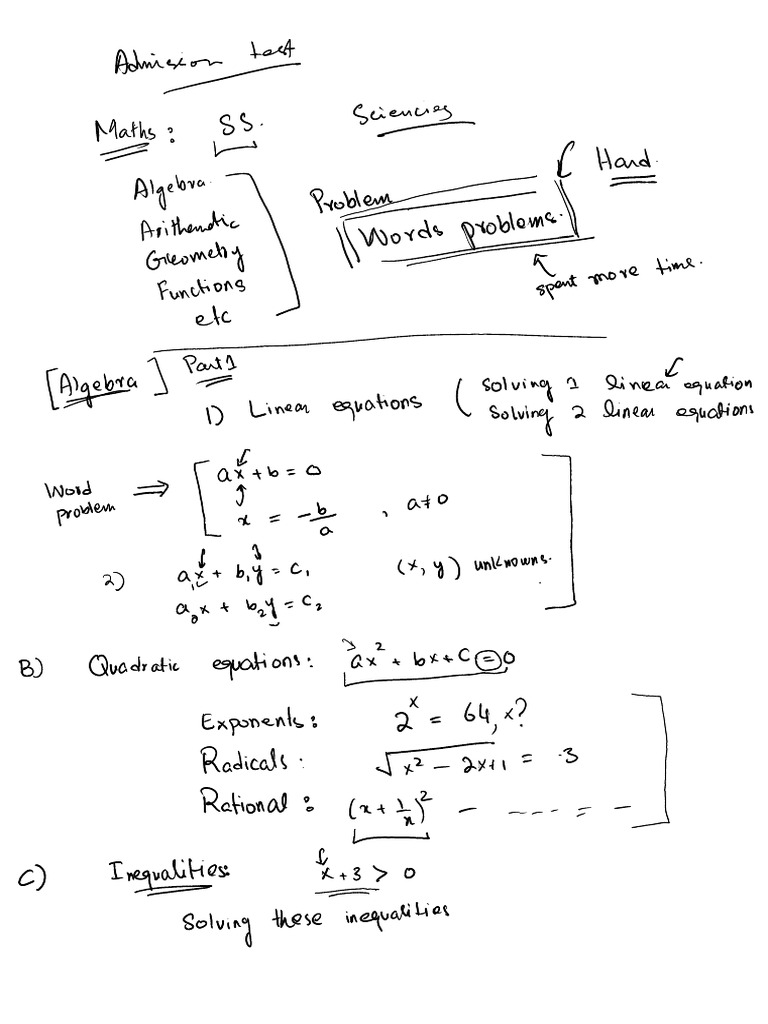 Admission test
Maths: SS. Sciences
Algebra.
Arithmetic
Geometry
Functions
etc
Problem
Words problems.
Hard.
spent more time.
[Algebra] Part 1
1) Linear equations ( solving 1 linear equation
solving 2 linear equations
Word problem ⇒
ax + b = 0
x = -b/a , a≠0
2) a₁x + b₁y = c₁ (x, y) unknowns.
a₂x + b₂y = c₂
B) Quadratic equations: ax² + bx + c = 0
Exponents: 2^x = 64, x?
Radicals: √(x² - 2x+1) = 3
Rational: (x + 1/x)² - ---- = -
C) Inequalities: x + 3 > 0
Solving these inequalities